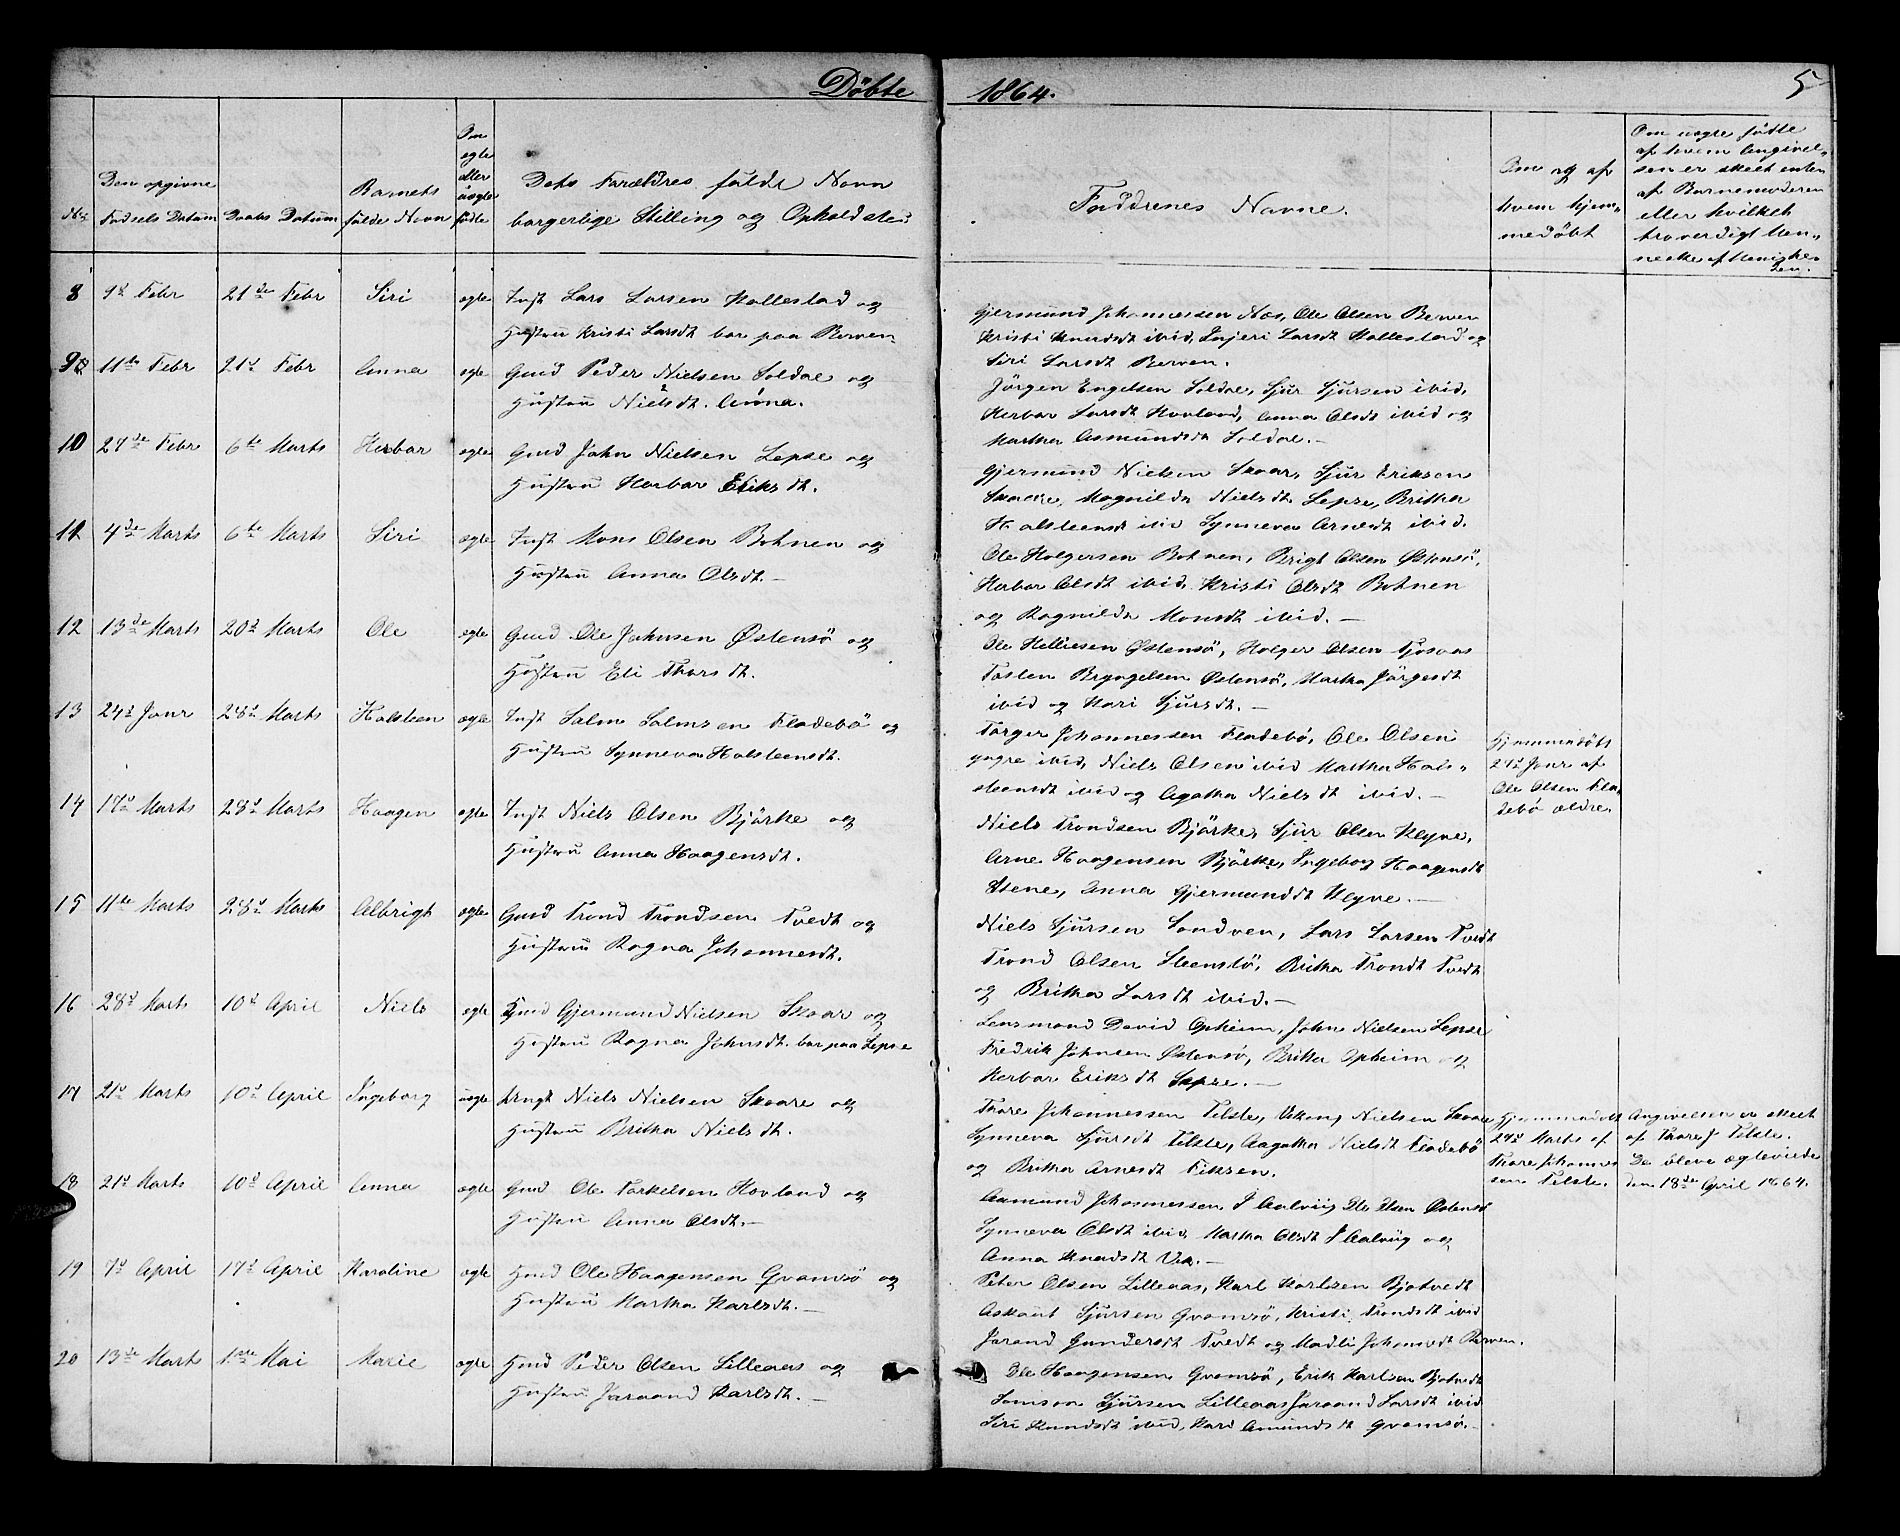 Döbte 1864. 5
No.
Den opgivne
Fødsels Datum
Daabs Datum
Barnets
fulde Navn
Om
egte
eller
uegte
fødte
Dets Forældres fulde Navn
borgerlige Stilling og Opholdsted
Faddrenes Navne.
Om og af
hvem hjem-
medöbt
Om uegte fötte
af hvem Angivel-
sen er skeet enten
af Barnemoderen
eller hvilket
troverdigt Men-
neske af Menighe-
den.
8 9d Febr 21de Febr Siri egte Inst Lars Larsen Hallestad og
Hustru Kristi Larsdt boe paa Berven
Gjermund Johannessen Aas, Ole Olsen Berven
Kristi Knudsdt ibid, Injeri Larsdt Hallestad og
Siri Larsdt Berven.
9 11te Febr 21d Febr Anna egte Gmd Peder Nielsen Soldal og
Hustru Nielsdt. Anna.
Jörgen Engelsen Soldal, Sjur Sjursen ibid,
Herbor Larsdt Hovland, Anna Olsdt ibid og
Martha Asmundsdt Soldal.-
10 27de Febr 6te Marts Herbor egte Gmd John Nielsen Lepse og
Hustru Herbor Eriksdt.
Gjermund Nielsen Skaar, Sjur Eriksen
Skaare, Magnilda Nielsdt Lepse, Britha
Halsteensdt ibid Synneva Arnesdt ibid.
11 4de Marts 6te Marts Siri egte Inst Mons Olsen Botnen og
Hustru Anna Olsdt.-
Ole Holgersen Botnen, Brigt Olsen Østensö,
Herbor Olsdt ibid, Kristi Olsdt Botnen
og Ragnilda Monsdt ibid.-
12 13de Marts 20d Marts Ole egte Gmd Ole Johnsen Østensö og
Hustru Eli Thorsdt.
Ole Helliesen Østensö, Holger Olsen Tjosaas
Tosten Bryngelsen Østensö, Martha Jörgesdt
ibid og Kari Sjursdt.-
13 24d Janr 28d Marts Halsteen egte Inst Salm Salmsen Fladebö og
Hustru Synneva Halsteensdt.
Torger Johannessen Fladebö, Ole Olsen
yngre ibid, Niels Olsen ibid Martha Hals-
steensdt ibid og Agatha Nielsdt ibid.-
Hjemmedöbt
27d Janr af
Ole Olsen Fla-
debö ældre.
14 17d Marts 28d Marts Haagen egte Inst Niels Olsen Björke og
Hustru Anna Haagensdt.
Niels Trondsen Björke, Sjur Olsen Klyve,
Arne Haagensen Björke, Ingeborg Haagensdt
Stene, Anna Gjermundsdt Klyve.-
15 11te Marts 28d Marts Albrigt egte Gmd Trond Trondsen Tvedt og
Hustru Ragna Johannesdt.
Niels Sjursen Sandven, Lars Larsen Tvedt
Trond Olsen Steenstö, Britha Trondsdt Tvedt
og Britha Larsdt ibid.-
16 28d Marts 10d April Niels egte Gmd Gjermund Nielsen Skaar og
Hustru Ragna Johnsdt. boe paa Lepse
Lensmand David Opheim, John Nielsen Lepse
Fredrik Johnsen Østensö, Britha Opheim og
Herbor Eriksdt Lepse.-
17 21d Marts 10d April Ingeborg uegte Ungk Niels Nielsen Skaare og
Hustru Britha Nielsdt.
Thore Johannessen Tilste, Hakon Nielsen Skaare
Synneva Sjursdt Tilste, Aagatha Nielsdt Fladebö
og Britha Arnesdt Fiksen.
Hjemmedöbt
24d Marts af
Thore Johannes
sen Tilste.
Angivelsen er skeet
af Thore J Tilste.
De bleve egteviede
den 18de April 1864.
18 21d Marts 10d April Anna egte Gmd Ole Torkelsen Hovland og
Hustru Anna Olsdt.-
Aamund Johannessen I Aalvig Ole Olsen Östensö
Synneva Olsdt ibid, Martha Olsdt I Aalvig og
Anna Knudsdt Vik.-
19 7d April 17d April Karoline egte Hmd Ole Haagensen Qvamsö og
Hustru Martha Karlsdt.-
Peter Olsen Lilleaas, Karl Karlsen Bjotvedt
Askout Sjursen Qvamsö, Kristi Trondsdt ibid
Jarand Gundersdt Tvedt og Madli Johansdt Berven.
20 13de Marts 1ste Mai Marie egte Hmd Peder Olsen Lilleaas og
Hustru Jaraand Karlsdt.-
Ole Haagensen Qvamsö, Erik Karlsen Bjotvedt
Samson Sjursen Lilleaas Jaraand Larsdt ibid
Siri Knudsdt ibid, Kari Amundsdt Qvamsö.-